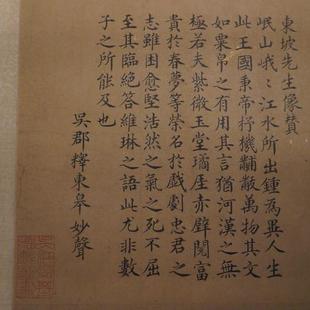 東坡先生像賛
岷山峩〻江水所出鍾為異人生
此王國秉帝杼機黼黻萬物其文
如粟帛之有用其言猶河漢之無
極若夫紫微玉堂瓊厓赤壁閱富
貴於春夢等榮名於戲劇忠君之
志雖困愈堅浩然之氣之死不屈
至其臨絶答維琳之語此尤非數
子之所能及也
吳郡釋東皋妙聲